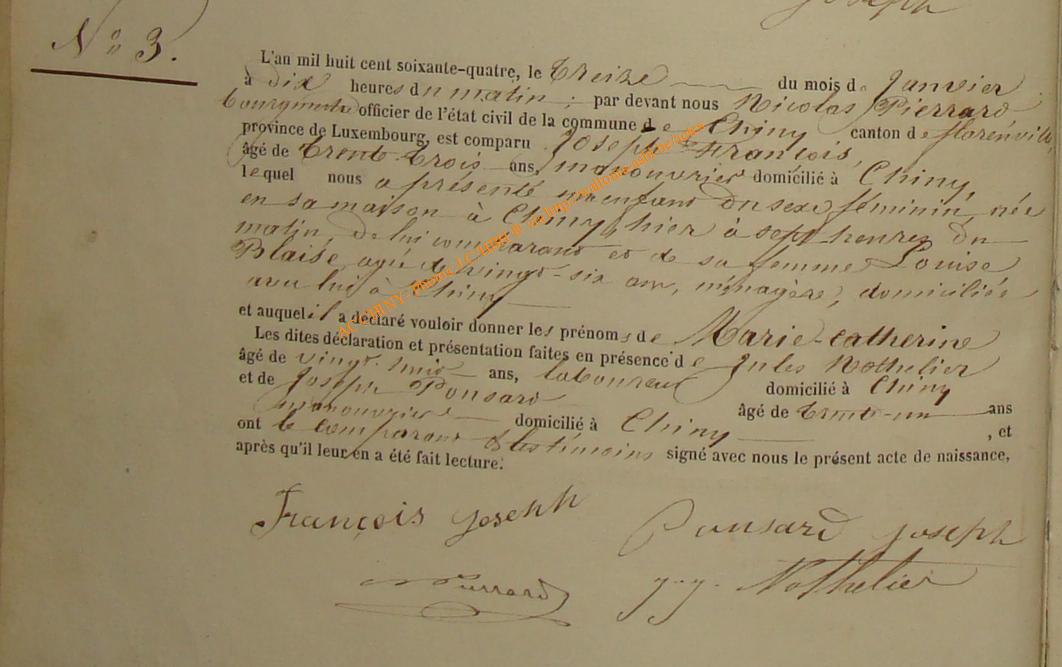 Joseph
N° 3.
L'an mil huit cent soixante-quatre, le treize du mois de Janvier
à dix heures du matin, par devant nous Nicolas Pierrard
bourgmestre officier de l'état civil de la commune de Chiny canton de florenville,
province de Luxembourg, est comparu Joseph François,
âgé de trente-trois ans, manouvrier domicilié à Chiny,
lequel nous a présenté un enfant du sexe féminin née
en sa maison à Chiny, hier à sept heures du
matin, de lui comparant et de sa femme Louise
Blaise, agée de vingt-six ans, ménagère, domiciliée
avec lui à Chiny
et auquel il a déclaré vouloir donner les prénoms de Marie-Catherine
Les dites déclaration et présentation faites en présence de Jules Nothelier
âgé de vingt-huit ans, laboureur domicilié à Chiny
et de Joseph Ponsard âgé de trente-un ans
manouvrier domicilié à Chiny , et
ont le comparant & les témoins signé avec nous le présent acte de naissance,
après qu'il leur en a été fait lecture.
François Joseph
Ponsard Joseph
Pierrard
J.J. Nothelier